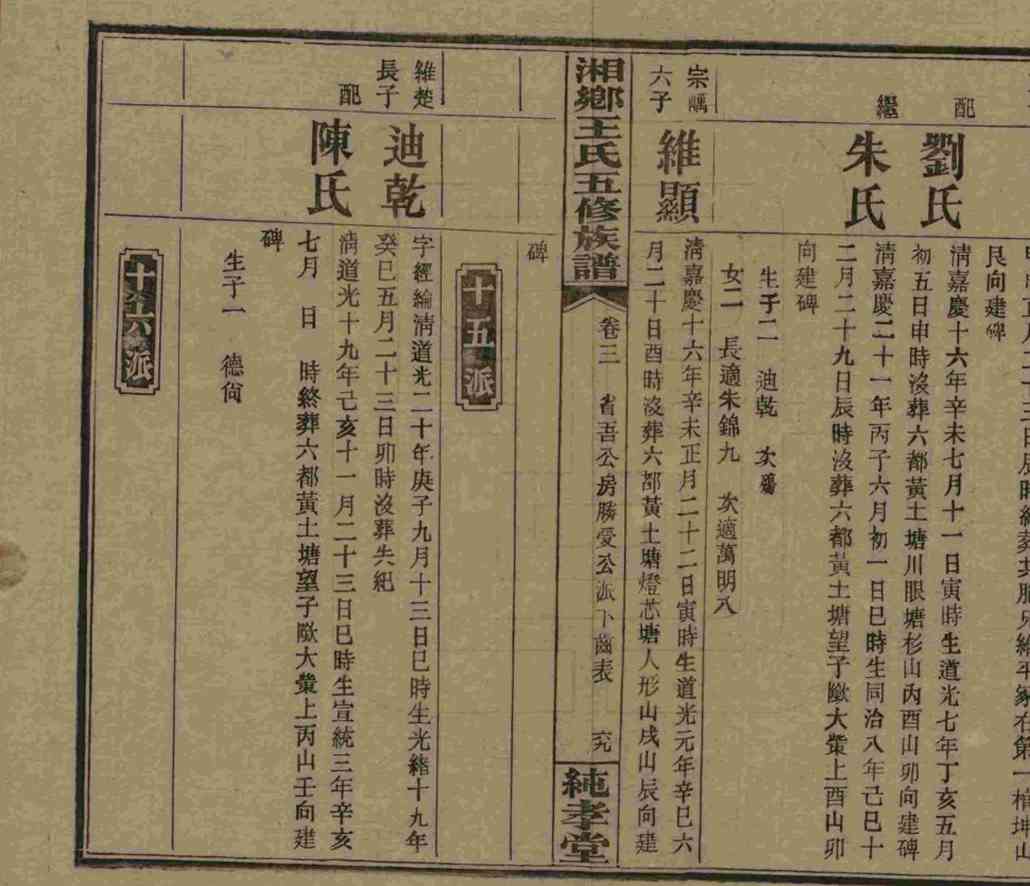 艮向建碑
配
劉氏
清嘉慶十六年辛未七月十一日寅時生道光七年丁亥五月
初五日申時沒葬六都黃土塘川眼塘杉山丙酉山卯向建碑
繼
朱氏
清嘉慶二十一年丙子六月初一日巳時生同治八年己巳十
二月二十九日辰時沒葬六都黃土塘望子歟大塋上酉山卯
向建碑
生子二 迪乾 次殤
女二 長適朱錦九 次適萬明八
宗嶼
六子
維顯
清嘉慶十六年辛未正月二十二日寅時生道光元年辛巳六
月二十日酉時沒葬六都黃土塘燈芯塘人形山戌山辰向建
湘鄉王氏五修族譜
卷三 省吾公房勝受公派下齒表
純孝堂
碑
十五派
維楚
長子
迪乾
字經綸清道光二十年庚子九月十三日巳時生光緒十九年
癸巳五月二十三日卯時沒葬失紀
配
陳氏
清道光十九年己亥十一月二十三日巳時生宣統三年辛亥
七月 日 時終葬六都黃土塘望子歟大塋上丙山壬向建
碑
生子一 德尙
十六派